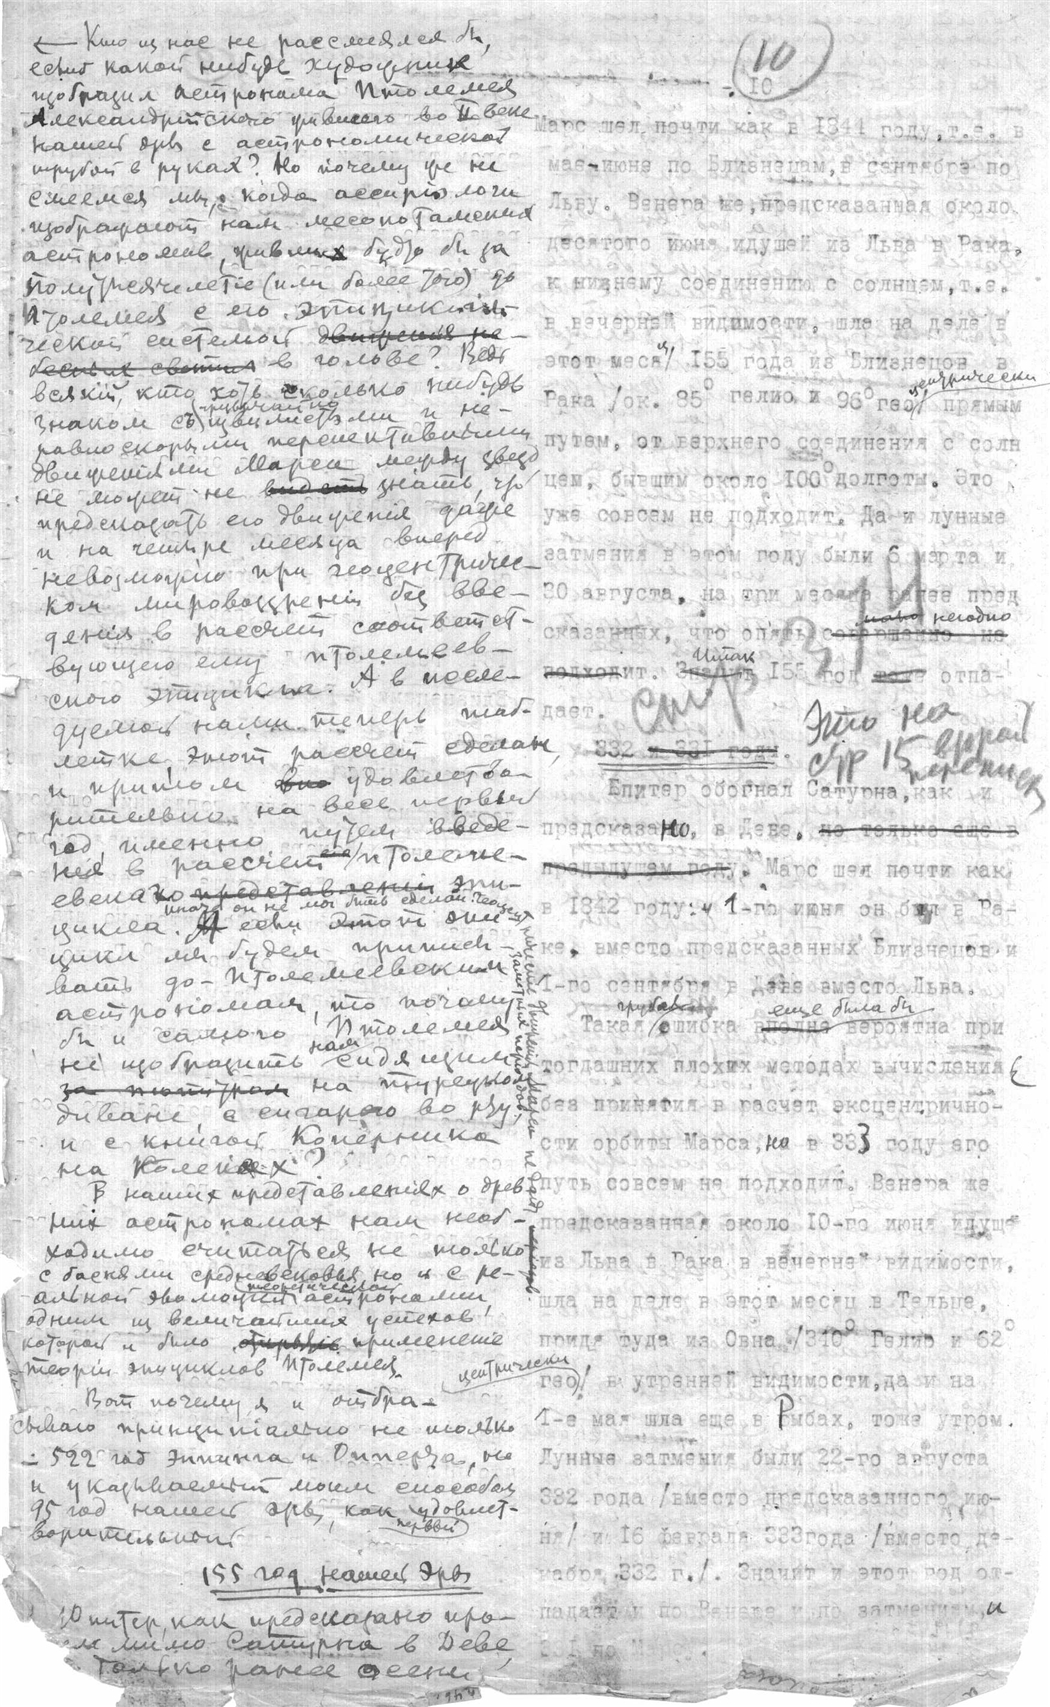 ← Кто из нас не рассмеялся бы,
если б какой нибудь художник
изобразил астронома Птолемея
Александрийского жившего во II веке
нашей эры с астрономической
трубой в руках? Но почему же не
смеемся мы, когда ассириологи
изображают нам месопотамских
астрономов, живших будто бы за
полутысячелетие (или более того) до
Птолемея с его эпицикли-
ческой системой движения не-
бесных светил в голове? Ведь
всякий, кто хоть сколько нибудь
знаком с причудливо извилистыми и не-
равноскорыми перспективными
движениями Марса между звезд
не может не видеть знать, что
предсказать его движения даже
и на четыре месяца вперед
невозможно при геоцентричес-
ком мировоззрении без вве-
дения в рассчет соответст-
вующего ему птолемеев-
ского эпицикла. А в иссле-
дуемой нами теперь таб-
летке этот рассчет сделан,
и притом удовлетво-
рительно на весь первый
год, именно путем введе-
ния в рассчет птолеме-
евского представления эпи-
цикла. иначе он не мог быть сделан
И если этот эпи-
цикл мы будем припис-
вать до-Птолемеевским
астрономам, то почему
бы и самого Птолемея
не изобразить нам сидящим
на турецком
диване с сигарою во рту
и с книгой Коперника
на коленях?
В наших представлениях о древ-
них астрономах нам необ-
ходимо считаться не только
с баснями средневековья, но и с ре-
альной эволюцией теоретической астрономии,
одним из величайших успехов
которой и было применение
теории эпициклов Птолемея.
Вот почему я и отбра-
сываю принципиально не только
- 522 год Эппинга и Опперта, но
и указываемый моим способом
95 год нашей эры, как первый удовлет-
ворительный
155 год нашей эры
Юпитер, как предсказано про-
мимо Сатурна в Деве,
только ранее осени
10
10
Марс шел почти как в 1841 году, т.е. в
мае-июне по Близнецам, в сентябре по
Льву. Венера же, предсказанная около
десятого июня идущей из Льва в Рака,
к нижнему соединению с солнцем, т.е.
в вечерней видимости, шла на деле в
этот месяц/ 155 года из Близнецов в
Рака /ок. 85° гелио и 96° геоцентрически/ прямым
путем, от верхнего соединения с солн
цем, бывшим около 100° долготы. Это
уже совсем не подходит. Да и лунные
затмения в этом году были 6 марта и
30 августа, на три месяца ранее пред
сказанных, что опять совершенно не негодно
подходит. Значит Итак 155 год тоже отпа-
дает.
стр 14
Это на
стр 15
332 и 331 годы.
Юпитер обогнал Сатурна, как и
предсказано, в Деве, но только еще в
предыдущем году. Марс шел почти как
в 1842 году: 1-го июня он был в Ра-
ке, вместо предсказанных Близнецов и
1-го сентября в Деве вместо Льва.
Такая грубая ошибка вполне еще была бы вероятна при
тогдашних плохих методах вычисления
без принятия в расчет эксцентрично-
сти орбиты Марса, но в 333 году его
путь совсем не подходит. Венера же
предсказанная около 10-го июня идуще
из Льва в Рака в вечерней видимости,
шла на деле в этот месяц в Тельце,
придя туда из Овна /310° Гелио и 62°
геоцентрически/ в утренней видимости, да и на
1-е мая шла еще в Рыбах, тоже утром.
Лунные затмения были 22-го августа
332 года /вместо предсказанного ию-
ня/ и 16 февраля 333 года /вместо де-
кабря 332 г./. Значит и этот год от-
падает и по Венере и по затмениям, и
331 по